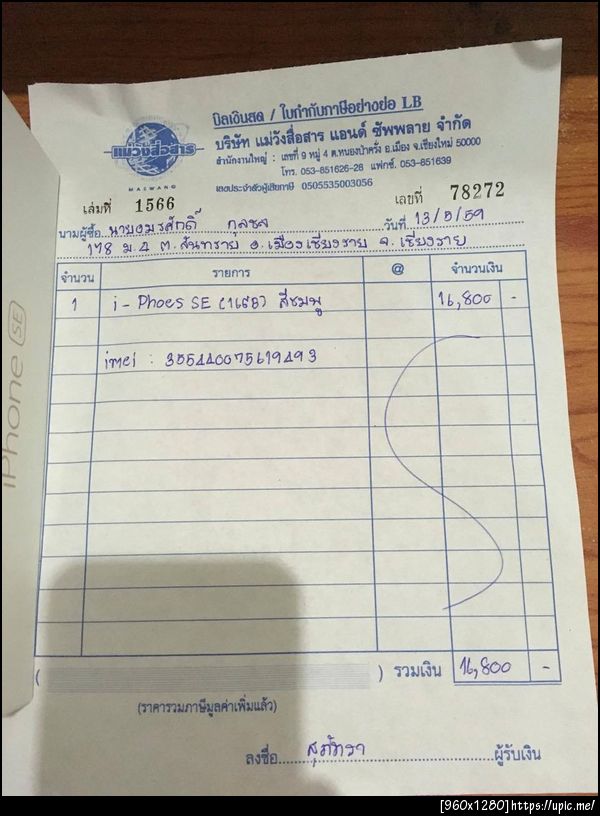 บิลเงินสด / ใบกำกับภาษีอย่างย่อ LB
บริษัท แม่วังสื่อสาร แอนด์ ซัพพลาย จำกัด
สำนักงานใหญ่ : เลขที่ 9 หมู่ 4 ต.หนองป่าครั่ง อ.เมือง จ.เชียงใหม่ 50000
โทร. 053-851626-28 แฟกซ์. 053-851639
เลขประจำตัวผู้เสียภาษี 0505535003056
แม่วังสื่อสาร
MAEWANG
เล่มที่ 1566 เลขที่ 78272
นามผู้ซื้อ นายอมรศักดิ์ กุลชล วันที่ 13/5/59
178 ม.4 ต.สันทราย อ.เมืองเชียงราย จ.เชียงราย
จำนวน รายการ @ จำนวนเงิน
1 i - Phoes SE (16GB) สีชมพู 16,800 -
imei : 355440075619493
iPhone SE
( ) รวมเงิน 16,800 -
(ราคารวมภาษีมูลค่าเพิ่มแล้ว)
ลงชื่อ สุภัทรา ผู้รับเงิน
[960x1280]https://upic.me/